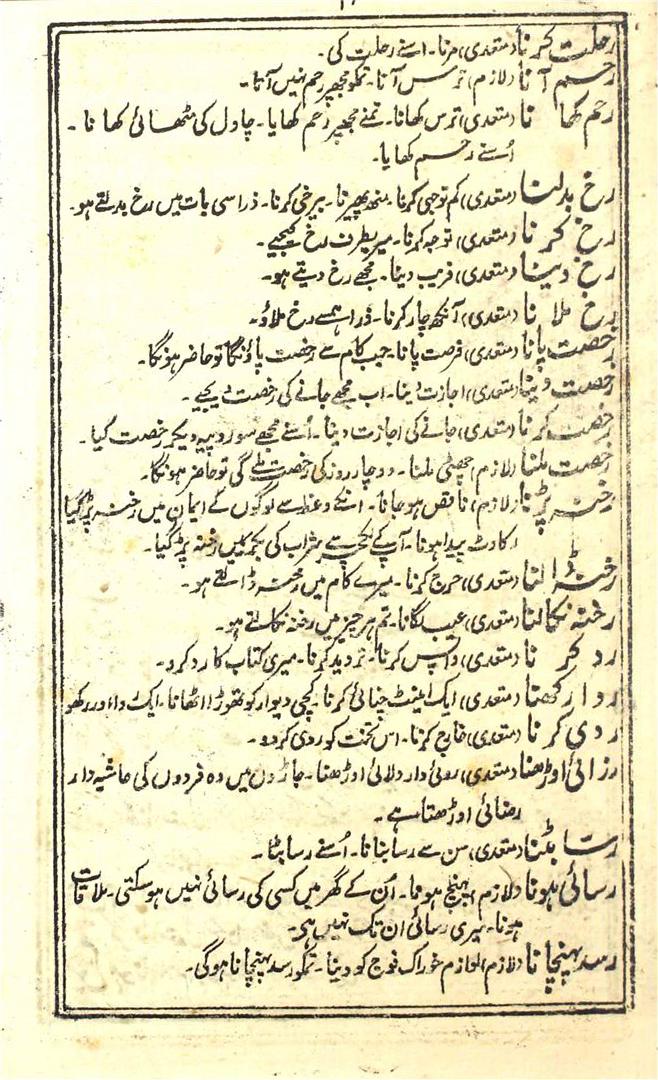 رحلت کرنا (متعدی) مرنا۔ اسنے رحلت کی۔
رحم آنا (لازم) ترس آنا۔ تمکو مجھپر رحم نہیں آتا۔
رحم کھانا (متعدی) ترس کھانا۔ تمنے مجھپر رحم کھایا۔ چاول کی مٹھائی کھانا۔
اُسنے رحم کھایا۔
رخ بدلنا (متعدی) کم توجہی کرنا۔ منھ پھیرنا۔ بیرخی کرنا۔ ذرا سی بات میں رخ بدلتے ہو۔
رخ کرنا (متعدی) توجہ کرنا۔ میریطرف رخ کیجیے۔
رخ دینا (متعدی) فریب دینا۔ مجھے رخ دیتے ہو۔
رخ ملانا (متعدی) آنکھ چار کرنا۔ ذرا ہمسے رخ ملاؤ۔
رخصت پانا (متعدی) فرصت پانا۔ جب کام سے رخصت پاؤنگا تو حاضر ہونگا۔
رخصت دینا (متعدی) اجازت دینا۔ اب مجھے جانے کی رخصت دیجیے۔
رخصت کرنا (متعدی) جانے کی اجازت دینا۔ اُسنے مجھے سو روپیہ دیکر رخصت کیا۔
رخصت ملنا (لازم) چھٹی ملنا۔ دو چار روز کی رخصت ملے گی تو حاضر ہونگا۔
رخنہ پڑنا (لازم) ناقص ہو جانا۔ اسکے وعظ سے لوگوں کے ایمان میں رخنہ پڑ گیا
رکاوٹ پیدا ہونا۔ آپ کے لکچر سے شراب کی بکری میں رخنہ پڑ گیا۔
رخنہ ڈالنا (متعدی) حرج کرنا۔ میرے کام میں رخنہ ڈالتے ہو۔
رخنہ نکالنا (متعدی) عیب لگانا۔ تم ہر چیز میں رخنہ نکالتے ہو۔
رد کرنا (متعدی) واپس کرنا۔ تردید کرنا۔ میری کتاب کا رد کرو۔
ردا رکھنا (متعدی) ایک اینٹ چنائی کرنا۔ کچی دیوار کو تھوڑا اٹھانا۔ ایک ردا اور رکھو
ردی کرنا (متعدی) خارج کرنا۔ اس تخت کو ردی کر دو۔
رزائی اوڑھنا (متعدی) روئی دار دلائی اوڑھنا۔ جاڑوں میں وہ فردوں کی حاشیہ دار
رضائی اوڑھتا ہے۔
رسا بٹنا (متعدی) سن سے رسا بنانا۔ اُسنے رسا بٹا۔
رسائی ہونا (لازم) پہنچ ہونا۔ اُن کے گھر میں کسی کی رسائی نہیں ہو سکتی۔ ملاقات
ہونا۔ میری رسائی ان تک نہیں ہے۔
رسد پہنچانا (لازم) لوازم خوراک فوج کو دینا۔ تمکو رسد پہنچانا ہوگی۔